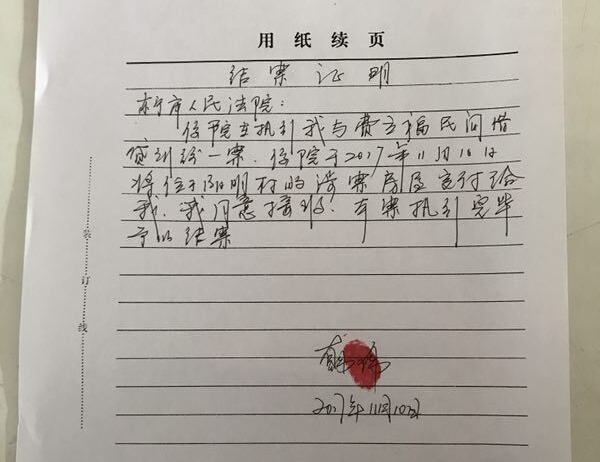 用纸续页
结案证明
市人民法院：
你院在执行我与费立福民间借
贷纠纷一案，你院于2017年11月10日
将位于阳明村的涉案房屋交付给
我，我同意接收，本案执行完毕
予以结案
2017年11月10日
装订线